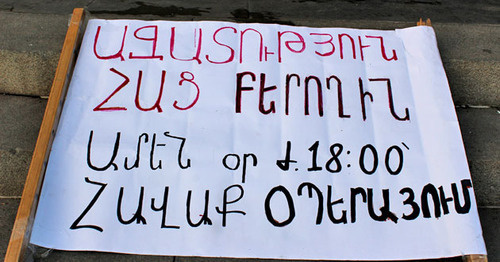 ԱԶԱՏՈՒԹՅՈՒՆ
ՀԱՑ ԲԵՐՈՂԻՆ
ԱՄԵՆ օր Ժ. 18:00՝
ՀԱՎԱՔ ՕՊԵՐԱՅՈՒՄ